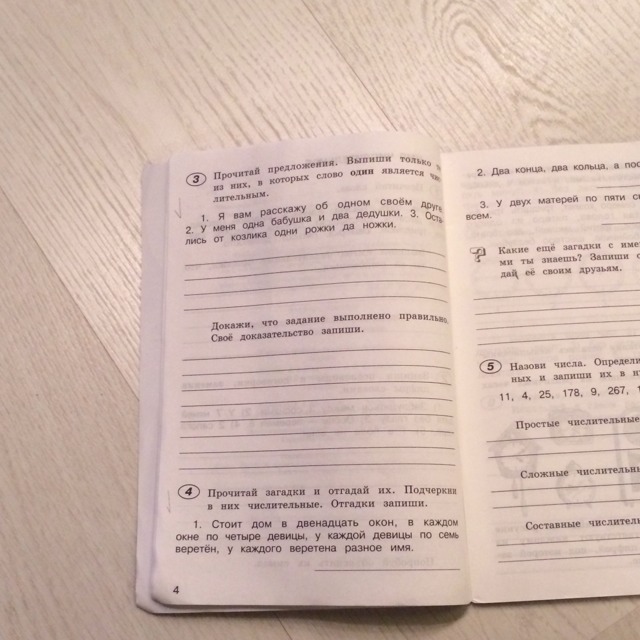 3 Прочитай предложения. Выпиши только
из них, в которых слово один является
лительным.
1. Я вам расскажу об одном своём
2. У меня одна бабушка и два дедушки. 3.
лись от козлика одни рожки да ножки.
Докажи, что задание выполнено правильно.
Своё доказательство запиши.
4 Прочитай загадки и отгадай их. Подчеркни
в них числительные. Отгадки запиши.
1. Стоит дом в двенадцать окон, в каждом
окне по четыре девицы, у каждой девицы по семь
веретён, у каждого веретена разное имя.
4
2. Два конца, два кольца, а
3. У двух матерей по пяти
всем.
? Какие ещё загадки с
ми ты знаешь? Запиши
дай её своим друзьям.
5 Назови числа.
ных и запиши их в
11, 4, 25, 178, 9, 267,
Простые
Сложные
Составные